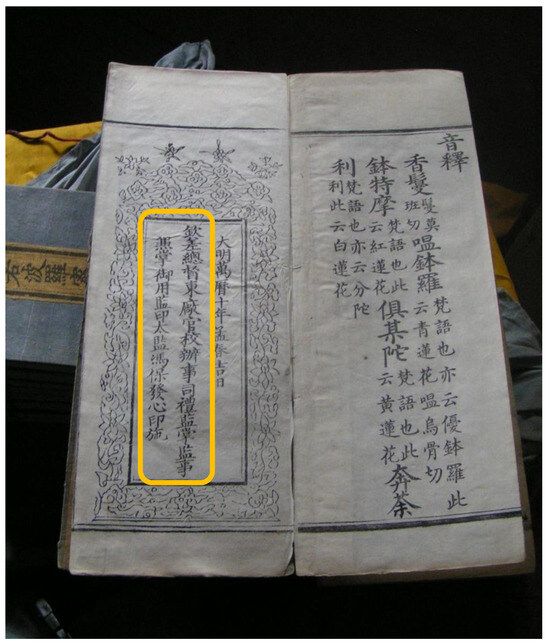 音釋
香鬘 鬘莫班切 嗢鉢羅 梵語也亦云優鉢羅此云青蓮花嗢烏骨切
鉢特摩 梵語也此云紅蓮花 俱某陀 梵語也此云黃蓮花 奔荼
利 梵語也亦云分陀利此云白蓮花
大明萬曆十年孟春吉日
欽差總督東厰官校辦事司禮監掌監事
兼掌御用監印太監馮保發心印施
若波羅蜜